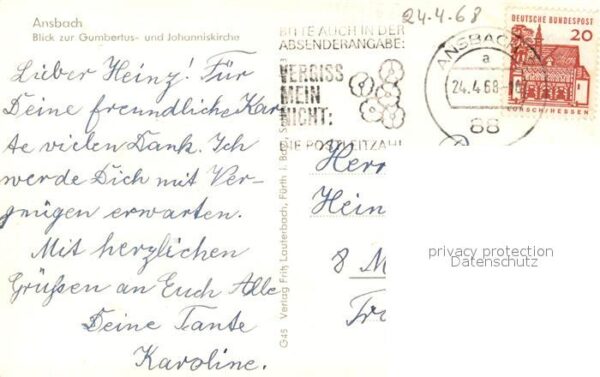 Ansbach
Blick zur Gumbertus- und Johanniskirche
Lieber Heinz! Für
Deine freundliche Kar-
te vielen Dank. Ich
werde Dich mit Ver-
gnügen erwarten.
Mit herzlichen
Grüßen an Euch Alle
Deine Tante
Karoline.
G45 Verlag Fritz Lauterbach, Fürth i. Bay.
24.4.68
BITTE AUCH IN DER
ABSENDERANGABE:
VERGISS
MEIN
NICHT:
DIE POSTLEITZAHL
ANSBACH
a
24.4.68
88
DEUTSCHE BUNDESPOST
20
LORSCH/HESSEN
Herr
Hein
8 M
privacy protection
Datenschutz